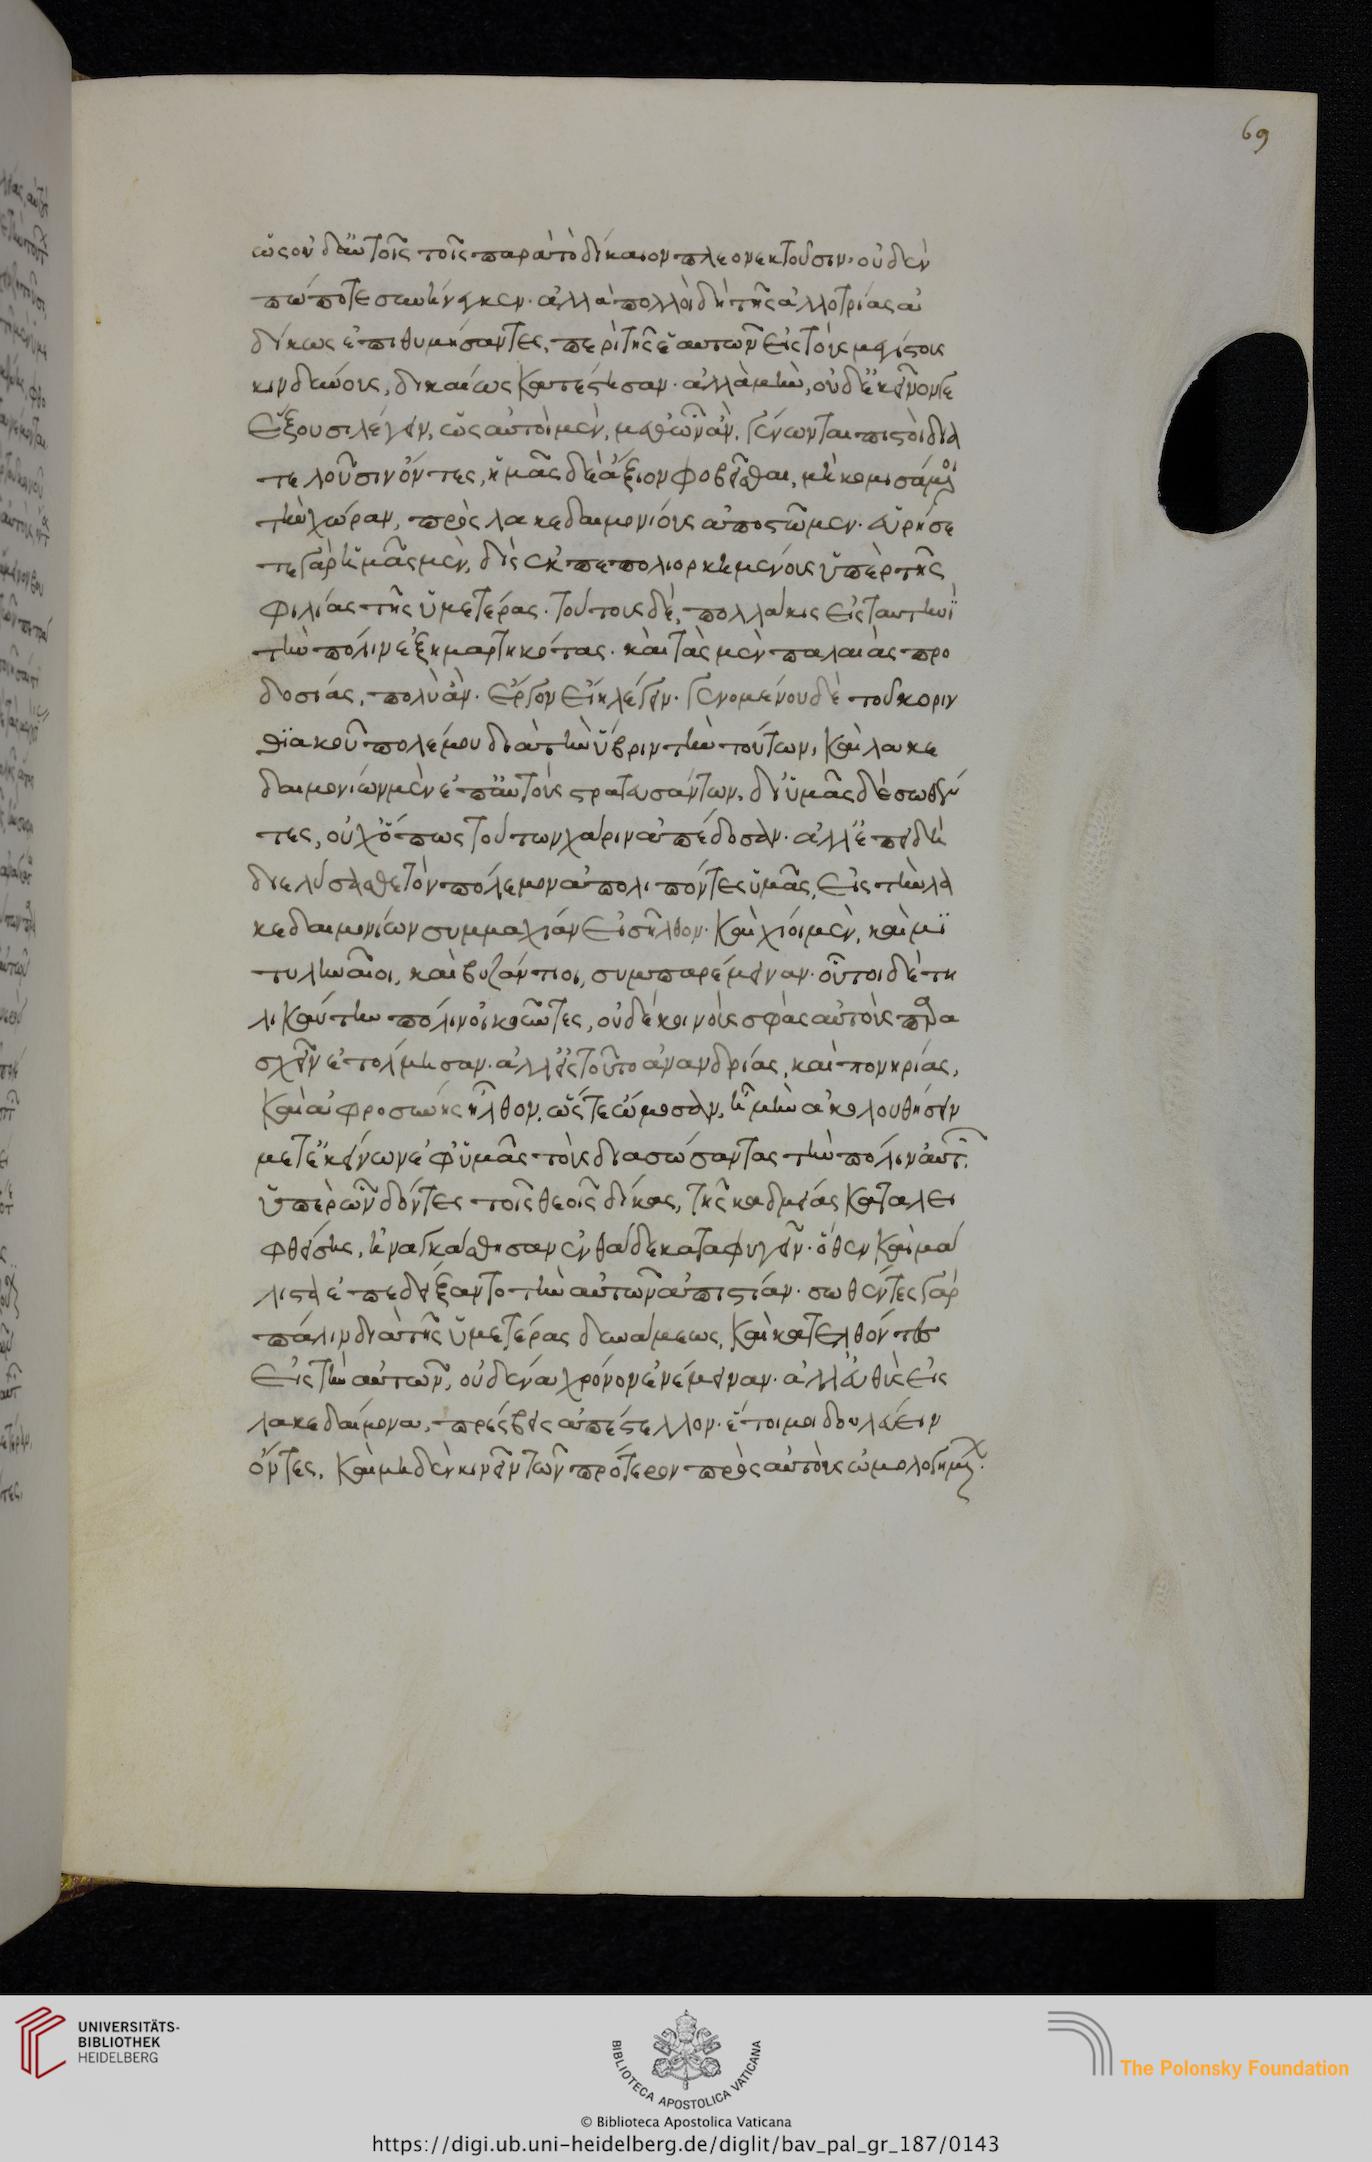 69
ὥς οὐδ' αὐτοῖς τοῖς παρὰ τὸ δίκαιον πλεονεκτοῦσιν· οὐδὲν
πώποτε συνήνεγκεν· ἀλλὰ πολλοὶ δὴ τῆς ἀλλοτρίας ἀ
δίκως ἐπιθυμήσαντες, περὶ τῆς ἑαυτῶν εἰς τοὺς μεγίστους
κινδύνους, δικαίως κατέστησαν· ἀλλὰ μὴν, οὐδ' ἐκεῖνό γε
ἕξουσι λέγειν, ὡς αὐτοὶ μὲν, μεθ' ὧν ἂν, γένωνται πιστοὶ δια
τελοῦσιν ὄντες, ἡμᾶς δὲ ἄξιον φοβεῖσθαι, μὴ κομισάμενοι
τὴν χώραν, πρὸς λακεδαιμονίους ἀποστῶμεν· εὑρήσε
τε γὰρ ἡμᾶς μὲν, δὶς ἐκπεπολιορκημένους ὑπὲρ τῆς
φιλίας τῆς ὑμετέρας· τούτους δὲ, πολλάκις εἰς ταυτηνὶ
τὴν πόλιν ἐξημαρτηκότας· καὶ τὰς μὲν παλαιὰς προ
δοσίας, πολὺ ἂν· ἔργον εἴη λέγειν· γενομένου δὲ τοῦ κοριν
θϊακοῦ πολέμου διὰ τὴν ὕβριν τὴν τούτων, καὶ λακε
δαιμονίων μὲν ἐπ' αὐτοὺς στρατευσάντων, δι' ὑμᾶς δὲ σωθέν
τες, οὐχ ὅπως τούτων χάριν ἀπέδοσαν· ἀλλ' ἐπειδὴ
διελύσασθε τὸν πόλεμον ἀπολιπόντες ὑμᾶς, εἰς τὴν λα
κεδαιμονίων συμμαχίαν εἰσῆλθον· καὶ χῖοι μὲν, καὶ μϊ
τυληναῖοι, καὶ βυζάντιοι, συμπαρέμειναν· οὗτοι δὲ τη
λικαύτην πόλιν οἰκοῦντες, οὐδὲ κοινοὺς σφᾶς αὐτοὺς παρα
σχεῖν ἐτόλμησαν· ἀλλ' εἰς τοῦτο ἀνανδρίας, καὶ πονηρίας,
καὶ ἀφροσύνης ἦλθον, ὥστε ὤμοσαν, ἦ μὴν ἀκολουθήσειν
μετ' ἐκείνων ἐφ' ὑμᾶς τοὺς διασώσαντας τὴν πόλιν αὐτ.
ὑπὲρ ὧν δόντες τοῖς θεοῖς δίκας, τῆς καδμείας καταλει
φθείσης, ἠναγκάσθησαν ἐνθάδε καταφυγεῖν· ὅθεν καὶ μά
λιστα ἐπεδείξαντο τὴν αὐτῶν ἀπιστίαν· σωθέντες γὰρ
πάλιν διὰ τῆς ὑμετέρας δυνάμεως, καὶ κατελθόντες
εἰς τὴν αὐτῶν, οὐδένα χρόνον ἐνέμειναν· ἀλλ' εὐθὺς εἰς
λακεδαίμονα, πρέσβεις ἀπέστελλον· ἕτοιμοι δουλεύειν
ὄντες, καὶ μηδὲν κινεῖν τῶν πρότερον πρὸς αὐτοὺς ὡμολογημ.
UNIVERSITÄTS-
BIBLIOTHEK
HEIDELBERG
BIBLIOTECA APOSTOLICA VATICANA
The Polonsky Foundation
© Biblioteca Apostolica Vaticana
https://digi.ub.uni-heidelberg.de/diglit/bav_pal_gr_187/0143